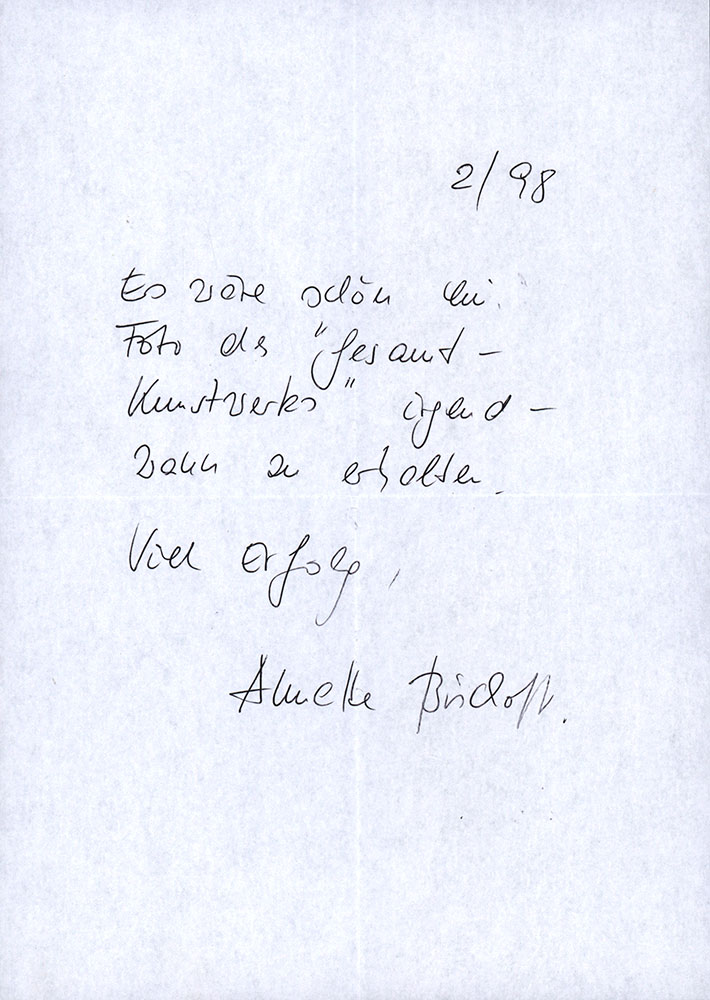 2/98
Es wäre schön ein
Foto des "Gesamt-
Kunstwerks" irgend-
wann zu erhalten.
Viel Erfolg,
Annette Bischoff.